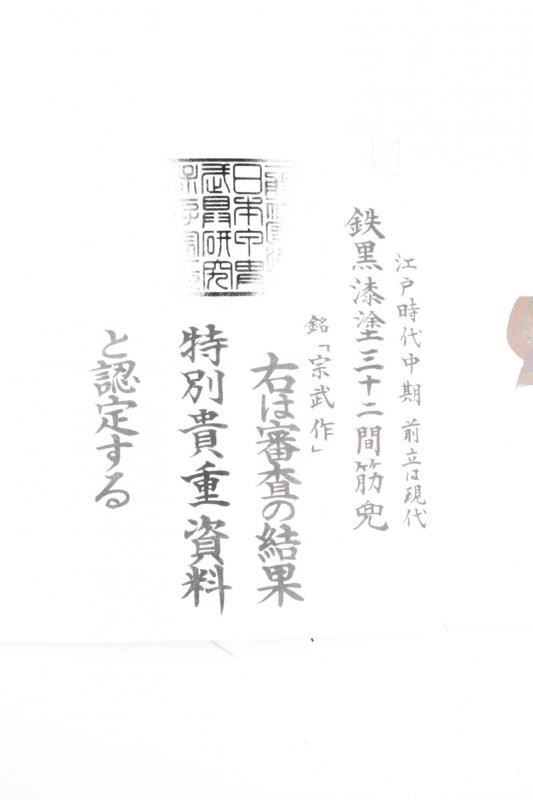 江戸時代中期 前立は現代
鉄黒漆塗三十二間筋兜
銘「宗武作」
右は審査の結果
特別貴重資料
と認定する
日本甲冑
武具研究